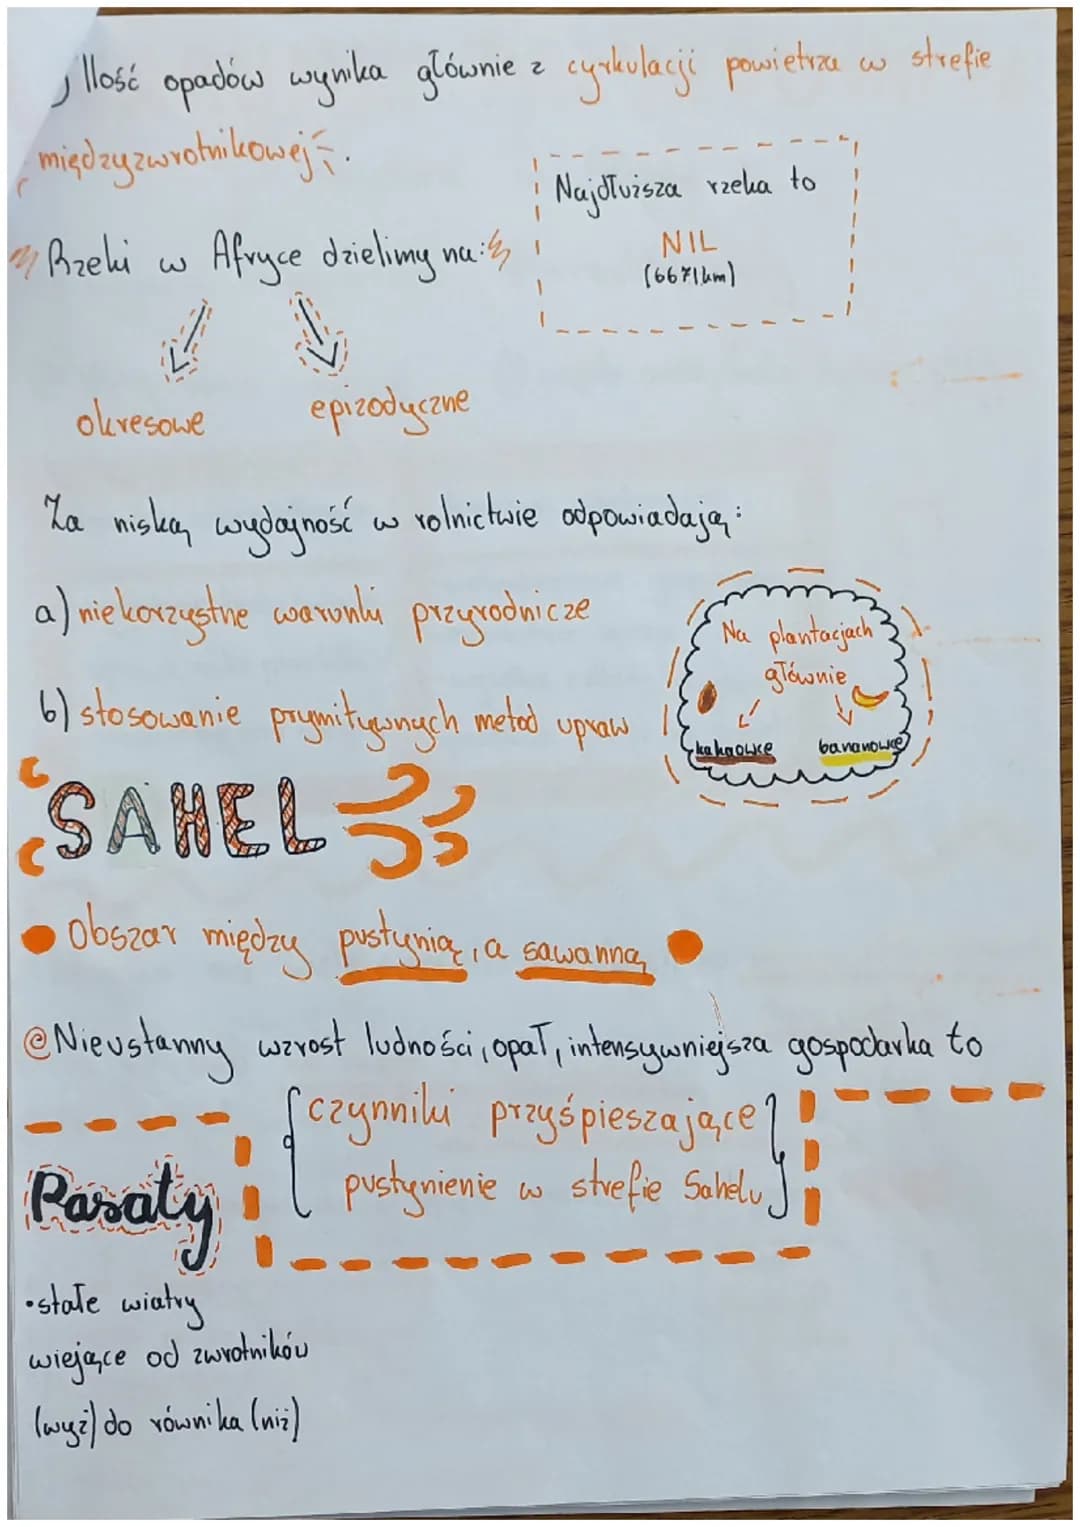 Ilość opadów wynika głównie z cyrkulacji powietrza w strefie
międzyzwrotnikowej.
Najdłuższa rzeka to
NIL
(6671km)
Rzeki w Afryce dzielimy na:
okresowe epizodyczne
Za niską wydajność w rolnictwie odpowiadają:
a) niekorzystne warunki przyrodnicze
b) stosowanie prymitywnych metod upraw
Na plantacjach
głównie
kakaowce bananowce
SAHEL
Obszar między pustynią, a sawanną
Nieustanny wzrost ludności, opał, intensywniejsza gospodarka to
czynniki przyśpieszające
pustynienie w strefie Sahelu
Pasaty
•stałe wiatry
wiejące od zwrotników
(wyż) do równika (niż)